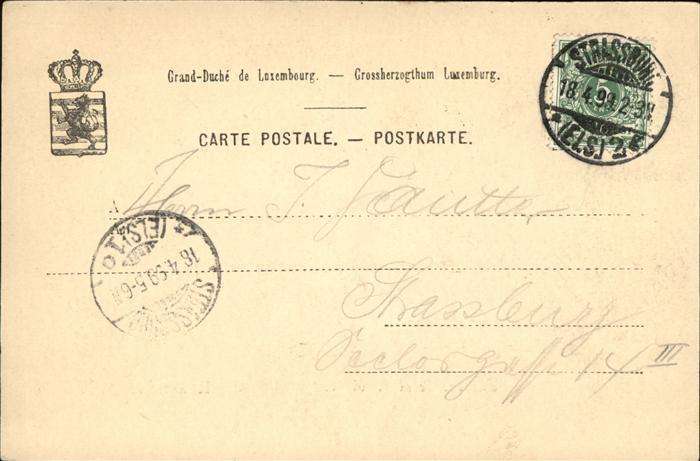 Grand-Duché de Luxembourg. — Grossherzogthum Luxemburg.
CARTE POSTALE. — POSTKARTE.
STRASSBURG
18.4.99.2-3N.
*(ELS.)2
5
Herrn J.
Strassburg
III
STRASSBURG
18.4.99.5-6N
*(ELS.)1